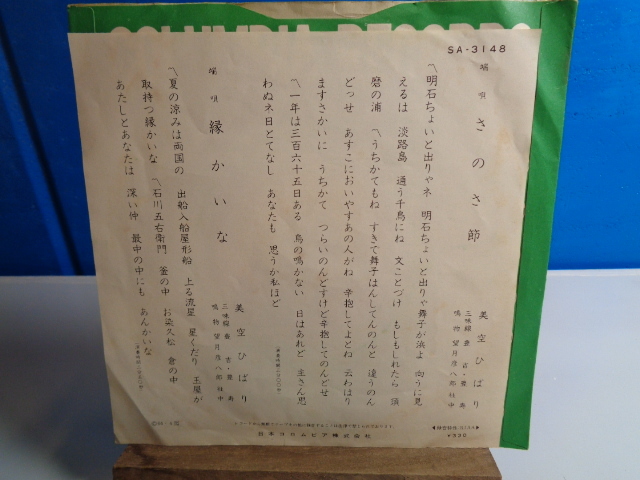 COLUMBIA RECORDS
SA-3148
端唄 さのさ節
美空ひばり
三味線 豊吉・豊寿
鳴物 望月彦八郎社中
〽明石ちょいと出りゃネ 明石ちょいと出りゃ舞子が浜よ 向うに見
えるは 淡路島 通う千鳥にね 文ことづけ もしもしれたら 須
磨の浦 〽うちかてもね すきで舞子はんしてんのんと 違うのん
どっせ あすこにおいやすあの人がね 辛抱してよとね 云わはり
ますさかいに うちかて つらいのんどすけど辛抱してのんどせ
〽一年は三百六十五日ある 烏の鳴かない 日はあれど 主さん思
わぬネ日とてなし あなたも 思うか私ほど
端唄 縁かいな
美空ひばり
三味線 豊吉・豊寿
鳴物 望月彦八郎社中
〽夏の涼みは両国の 出船入船屋形船 上る流星 星くだり 玉屋が
取持つ縁かいな 〽石川五右衛門 釜の中 お染久松 倉の中
あたしとあなたは 深い仲 最中の中にも あんかいな
日本コロムビア株式会社
¥330